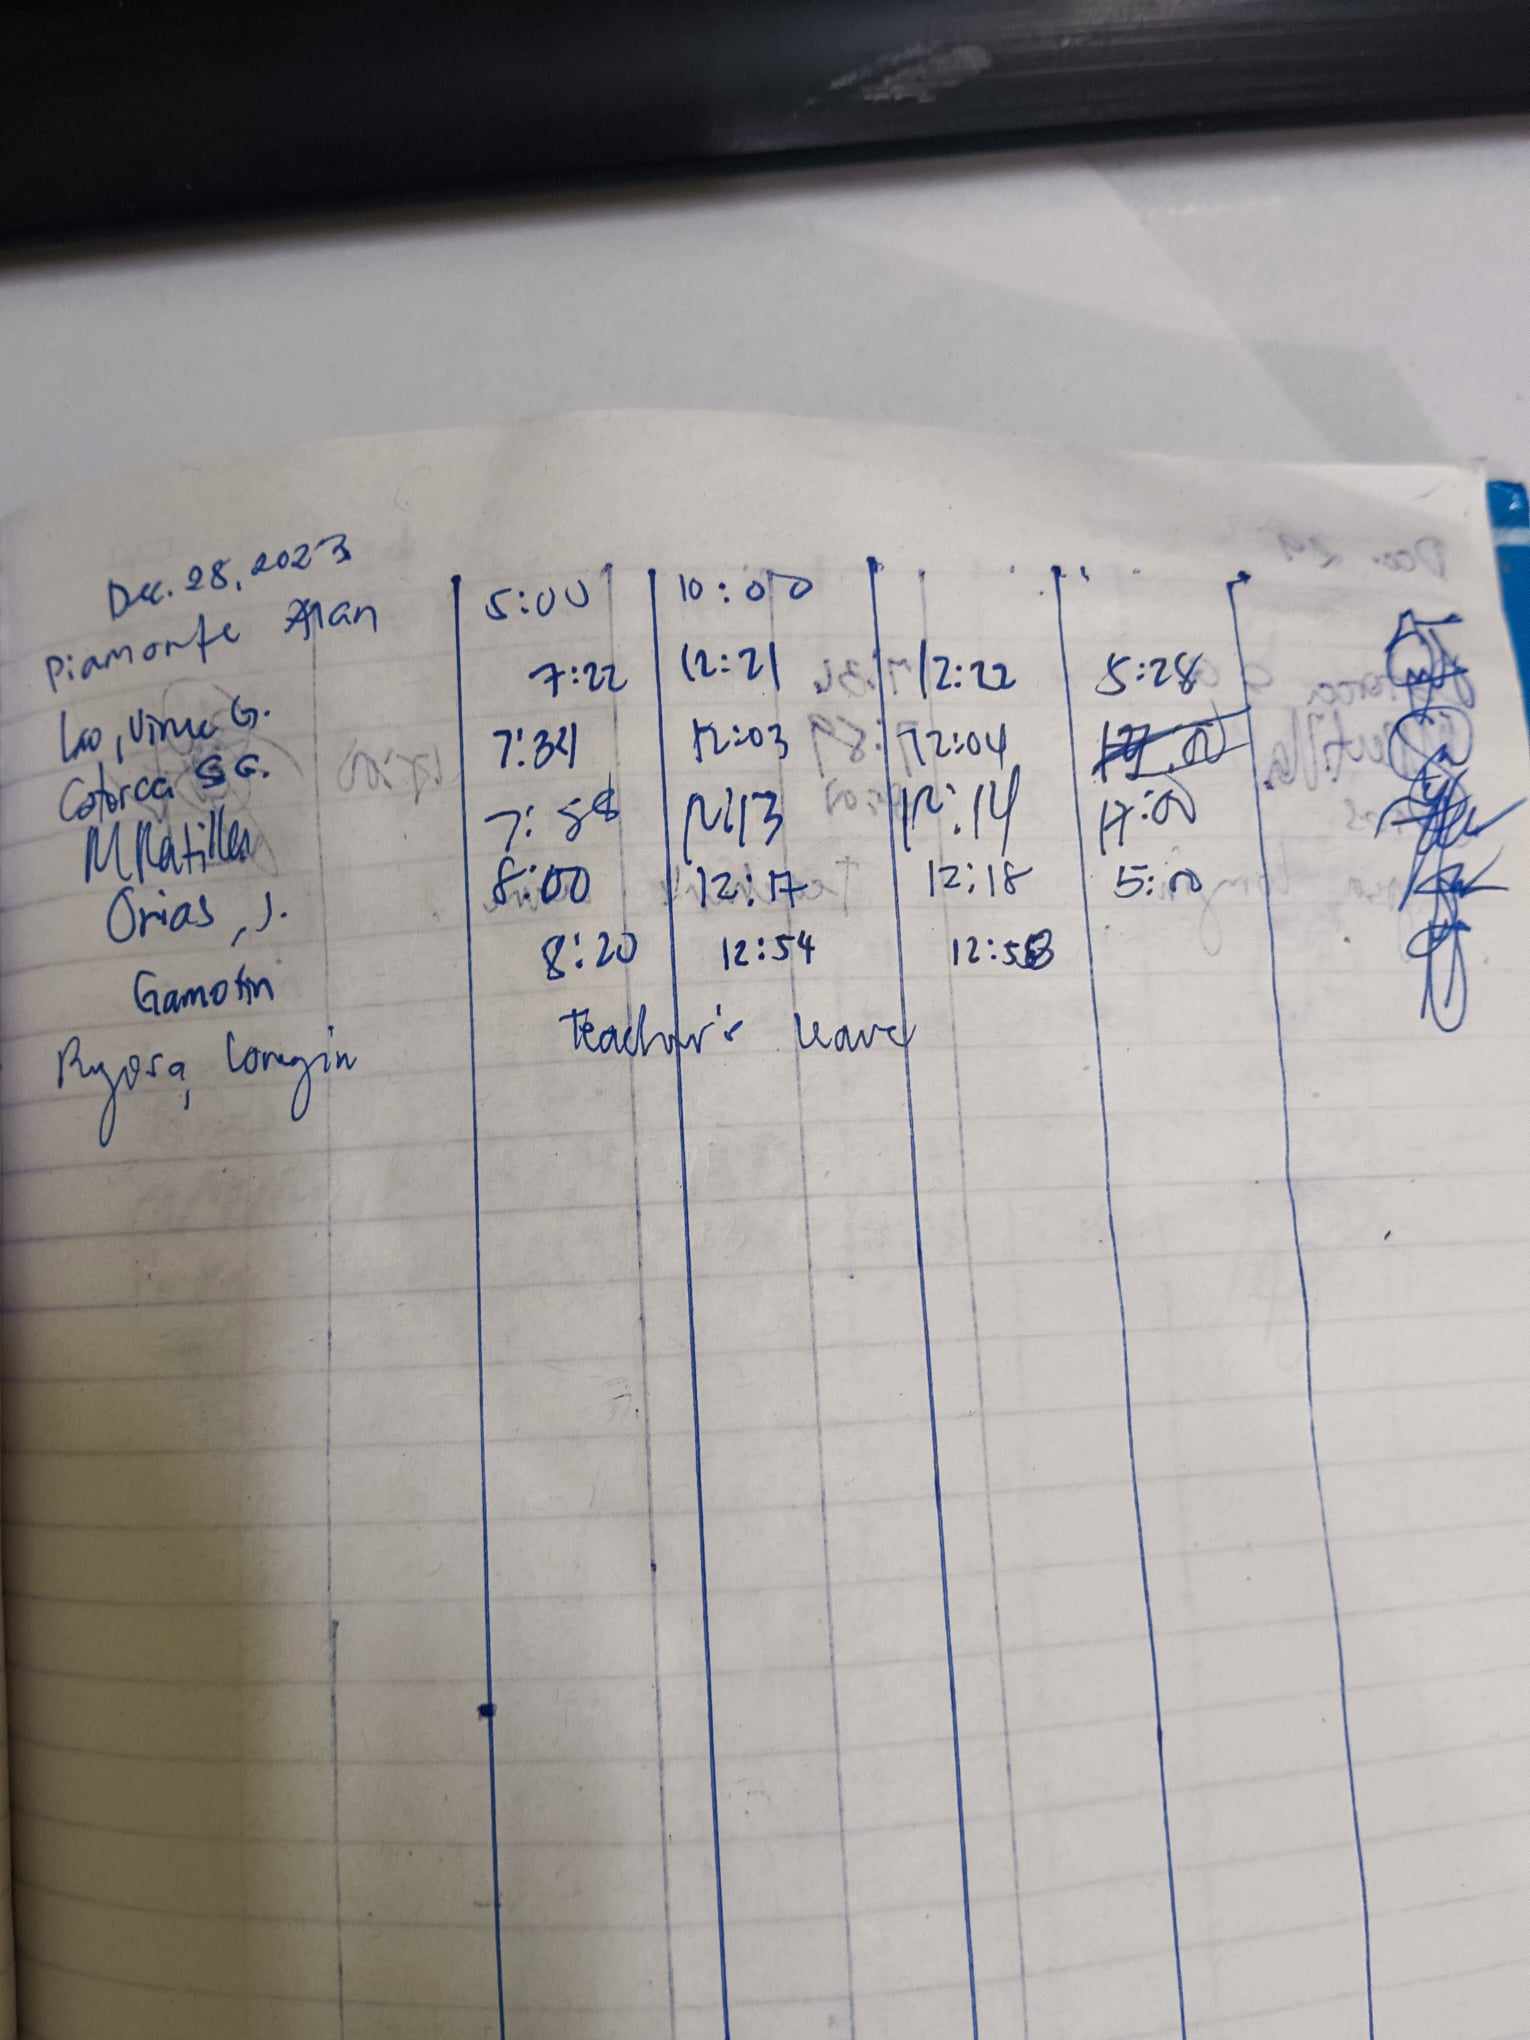 Dec. 28, 2023
Piamonte Alan 5:00 10:00
Lao, Vince G. 7:22 12:21 12:22 5:28
Catorca S G. 7:34 12:03 12:04
M Ratilla 7:58 12:13 12:14 17:00
Orias, J. 8:00 12:17 12:18 5:00
Gamotin 8:20 12:54 12:58
Teacher's leave